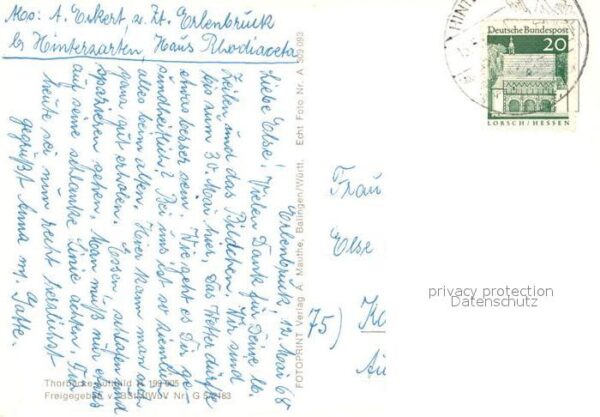 Abs: A. Enkert, z. Zt. Erlenbruck
bei Hinterzarten, Haus Rhodiaceta
Erlenbruck, 12. Mai 68
Liebe Else! Vielen Dank für Deine lb.
Zeilen und das Bildchen. Wir sind
bis zum 30. Mai hier, das Wetter dürfte
etwas besser sein. Wie geht es Dir ge-
sundheitlich? Bei uns ist so ziemlich
alles beim alten. Hier kann man sich
ganz gut erholen. Essen, schlafen und
spazieren gehen. Man muß nur etwas
auf seine schlanke Linie achten. Für
heute sei nun recht herzlichst
gegrüßt Anna m. Gatte.
Thorbecke-Luftbild N 199 005
Freigegeben v.
FOTOPRINT Verlag A. Mauthe, Balingen/Württ. Echt Foto Nr. A 309 093
HINT
Deutsche Bundespost
20
LORSCH/HESSEN
Frau
Else
(75) Ka
privacy protection
Datenschutz